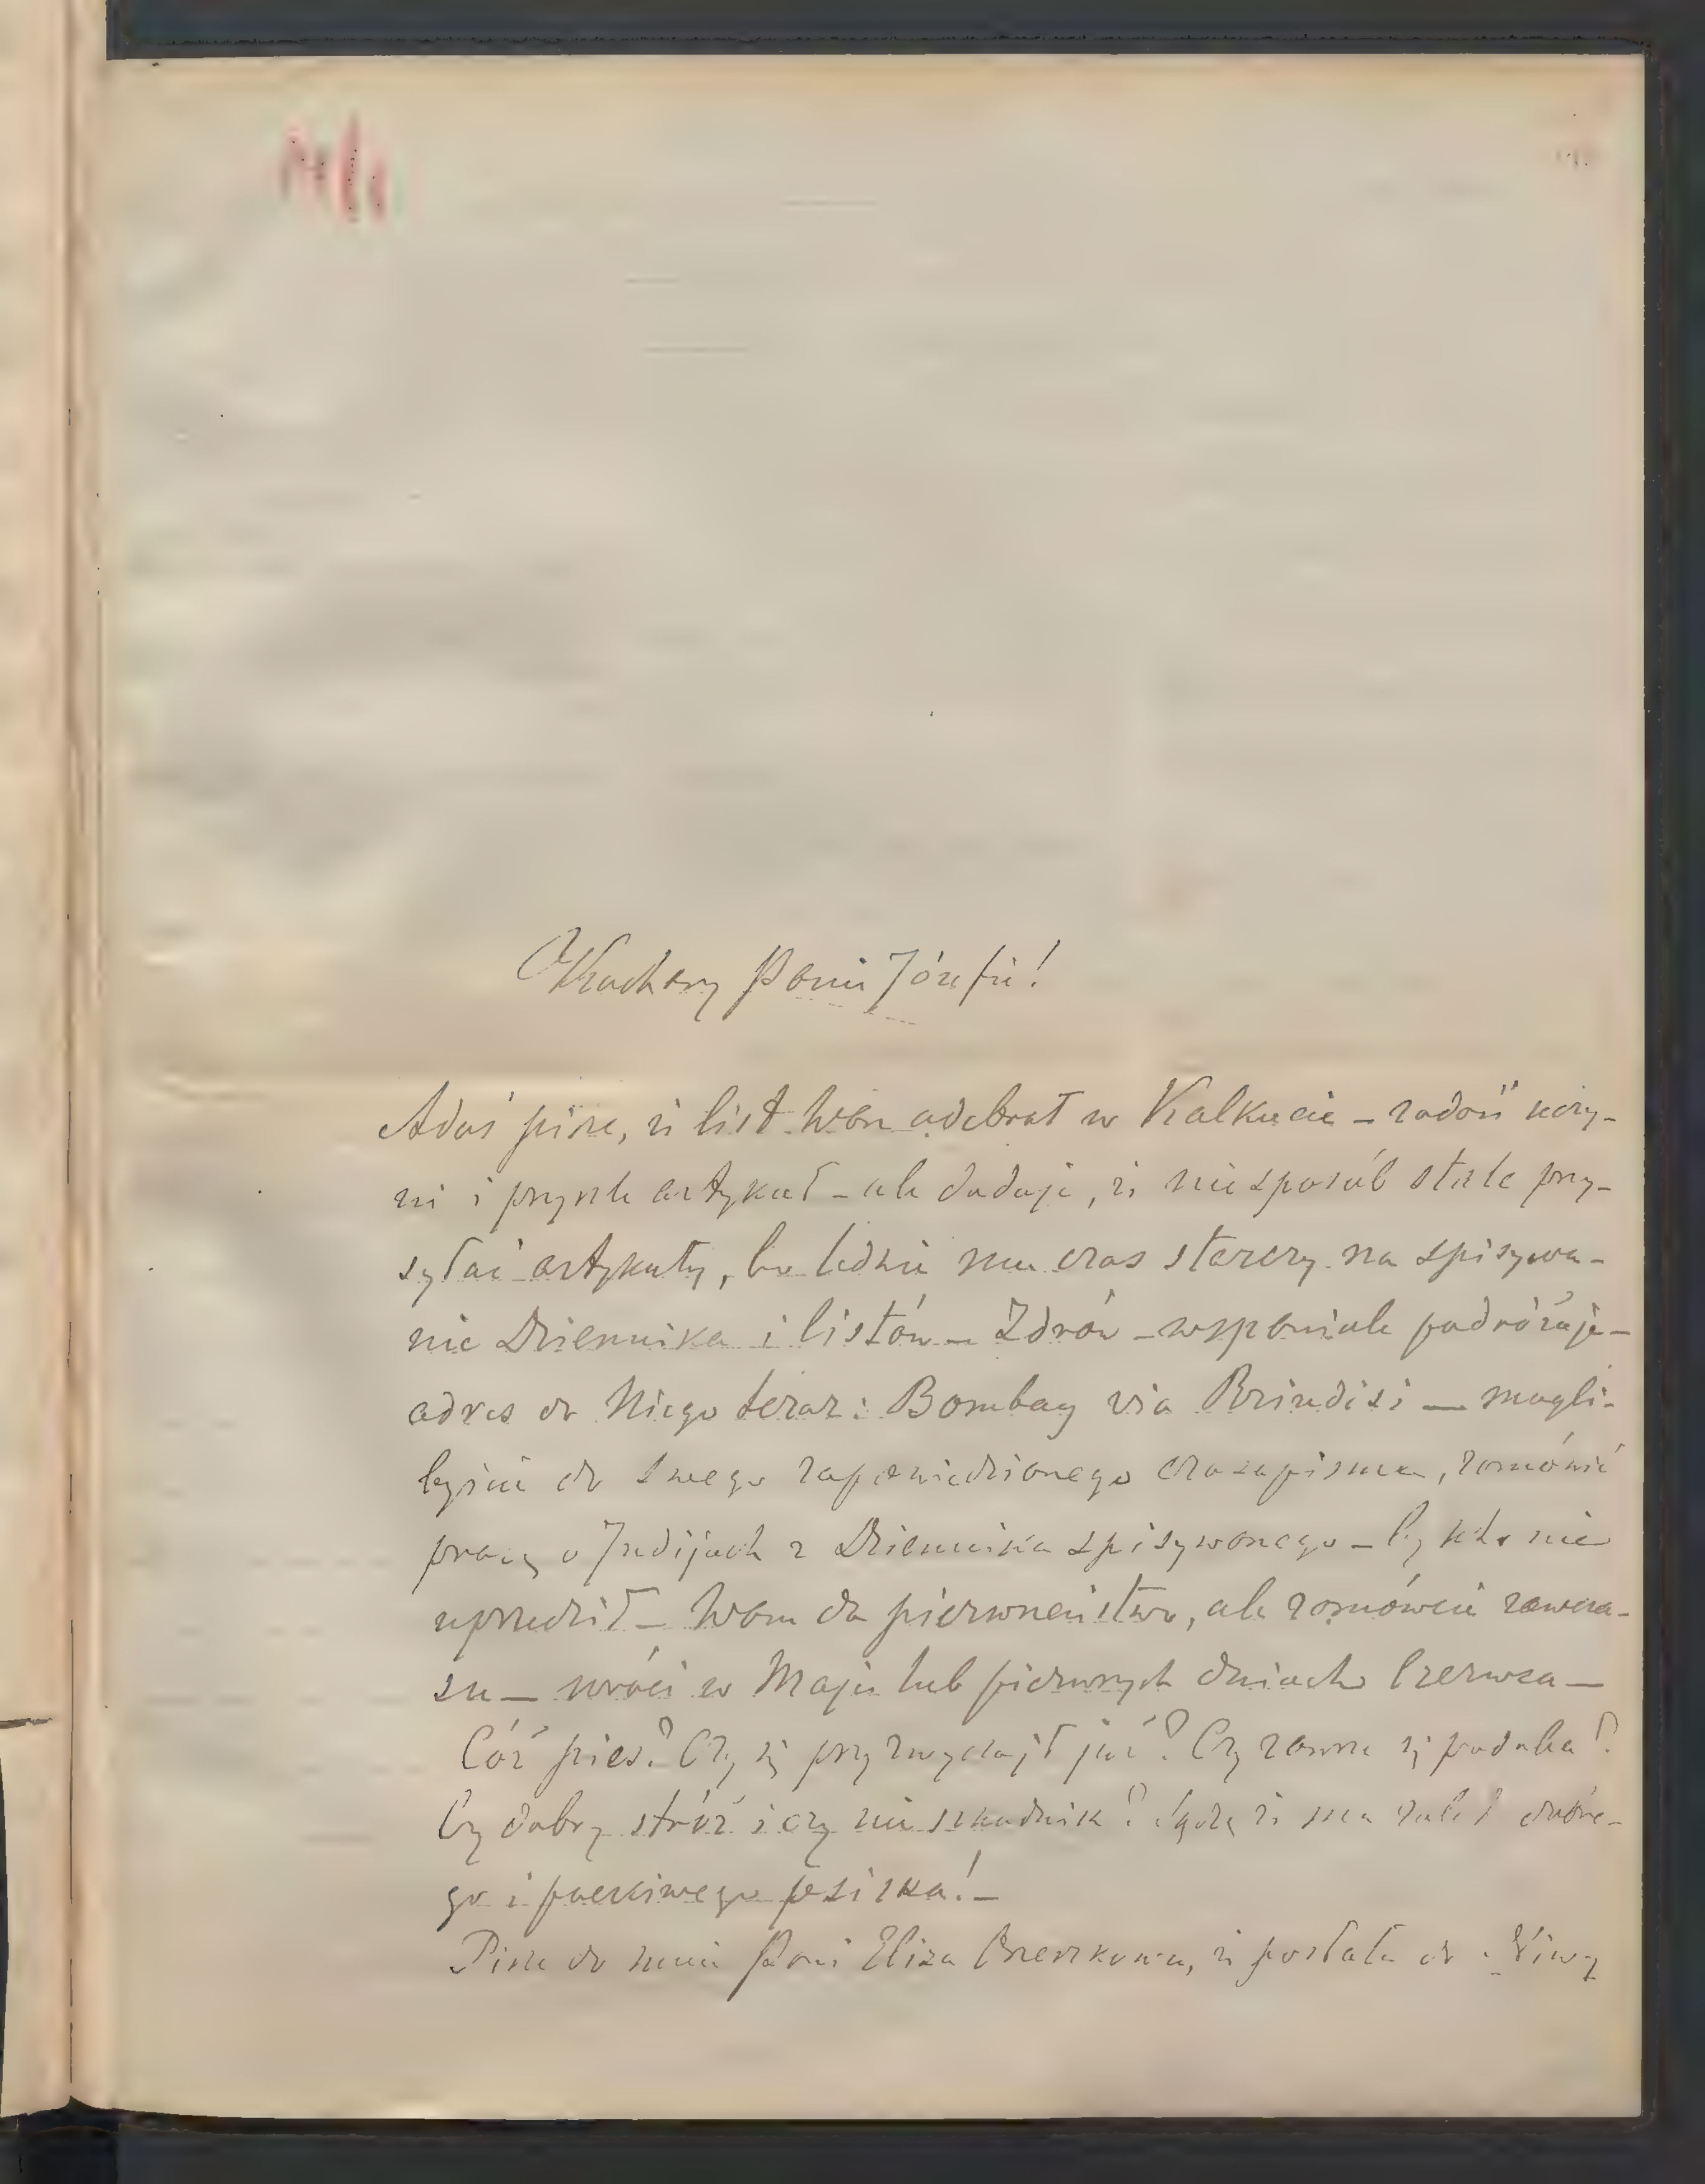 Kochany Panie Józefie!
Adaś pisze, iż list Wasz odebrał w Kalkucie – zadość uczy-
ni i przyśle artykuł – ale dodaje, iż niesposób stale przy-
syłać artykuły, bo ledwie mu czas starczy na spisywa-
nie Dziennika i listów – Zdrów – wspaniale podróżuje –
adres do Niego teraz: Bombay via Brindisi – mogli-
byście do swego zapowiedzianego czasopisma, zamówić
pracę o Indijach z Dziennika spisywanego – by kto nie
uprzedził – Wam da pierwszeństwo, ale zamówcie zawcza-
su – wróci w Maju lub pierwszych dniach Czerwca –
Cóż pies? Czy się przyzwyczaił już? Czy zawsze się podoba?
Czy dobry stróż i czy nie szkodnik? Sądzę iż ma dobre-
go i poczciwego psiska! –
Pisze do mnie Pani Eliza Orzeszkowa, iż posłała do Niwy